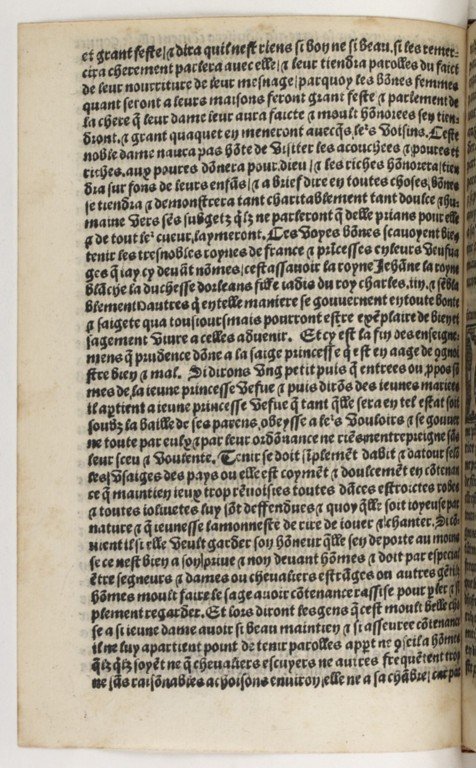 et grant feste/ ⁊ dira quil nest riens si bon ne si beau. si les remer-
cira cherement parlera avec elle/ ⁊ leur tiendra parolles du faict
de leur nourriture de leur mesnage/ parquoy les bōnes femmes
quant seront a leurs maisons feront grant feste ⁊ parlement de
la chere q̄ leur dame leur aura faicte ⁊ moult hōnorees sen tien-
dront. ⁊ grant quaquet en meneront avecq̄s le's voisins. Ceste
noble dame naura pas hōte de visiter les acouchees ⁊ poures et
riches. aux poures dōnera pour dieu/ ⁊ les riches hōnorera/ tien
dra sur fons de leurs enfās/ ⁊ a brief dire en toutes choses, bōnes
se tiendra ⁊ demonstrera tant charitablement tant doulce ⁊ hu-
maine vers ses subgetz q̄lz ne parleront q̄ delle prians pour elle
⁊ de tout le' cueur laymeront. Ces voyes bōnes scauoyent biē
tenir les tresnobles roynes de france ⁊ prīcesses en leurs veufua
ges q̄ iay cy deuāt nōmes/ cestassauoir la royne Jehāne la royne
blāche la duchesse dorleans fille iadis du roy charles .iiii. ⁊ sēbla
blement dautres q̄ en telle maniere se gouuernent en toute bonte
⁊ saigete qua tousioursmais pourront estre exēplaire de bien et
sagement viure a celles aduenir. Et cy est la fin des enseigne-
mens q̄ prudence dōne a la saige princesse q̄ est en aage de ꝯgnoi
stre bien ⁊ mal. Si dirons vng petit puis q̄ entrees ou ꝓpos sō
mes de la ieune princesse vefue ⁊ puis dirōs des ieunes mariees
il aptient a ieune princesse vefue q̄ tant q̄lle sera en tel estat soit
soubz la baille de ses parens, obeysse a le's vouloirs ⁊ se gouuer
ne toute par eulx ⁊ par leur ordōnance ne riēs nentrepreigne sās
leur sceu ⁊ voulente. Tenir se doit sīplemēt dabit ⁊ datour selō
les vsaiges des pays ou elle est coymēt ⁊ doulcemēt en cōtenan
ce q̄ maintien ieux trop rēuoisies toutes dāces estroictes robes
⁊ toutes ioliuetes luy sōt deffendues ⁊ quoy q̄lle soit ioyeuse par
nature ⁊ q̄ ieunesse lamonneste de rire de iouer ⁊ chanter. Si cō
uient il si elle veult garder son hōneur q̄lle sen deporte au moins
se ce nest bien a son priue ⁊ non deuant hōmes ⁊ doit par especial
ētre segneurs ⁊ dames ou cheualiers estrāges ou autres gētilz
hommes moult faire le sage auoir cōtenance rassise pour pler ⁊ sī
plement regarder. Et lors diront les gens q̄ cest moult belle cho
se a si ieune dame auoir si beau maintien ⁊ si asseuree cōtenance
il ne luy apartient point de tenir parolles apt ne ꝯseil a hōmes
q̄lz q̄lz soyēt ne q̄ cheualiers escuyers ne autres frequētent trop
ne sās raisōnables achoisōns enuiron elle ne a sa chābre/ car par